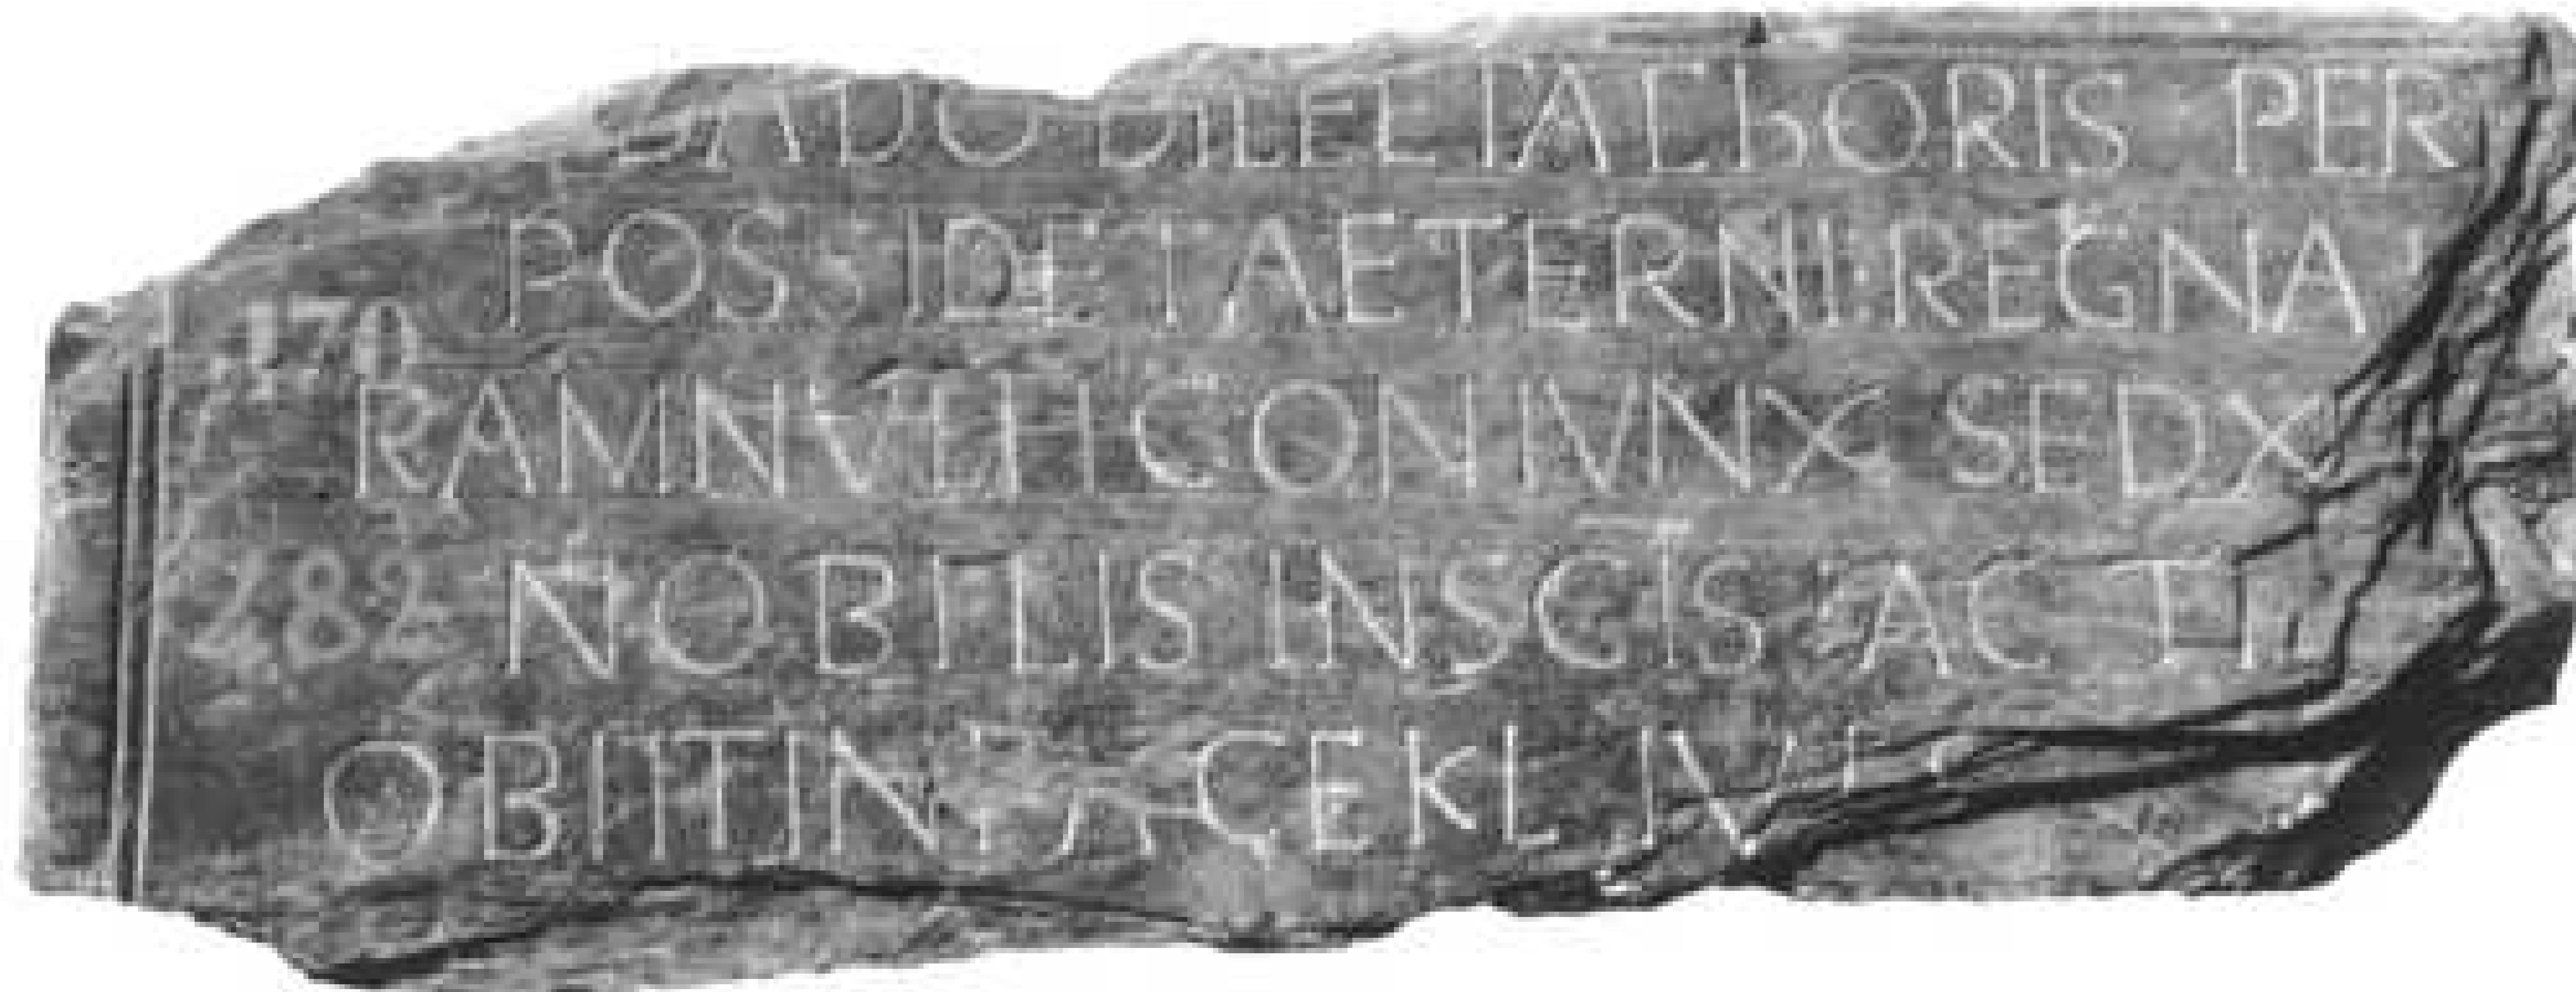 DILECTA CHORIS PER
POSSIDET AETERNI REGNA
170
RAMNULFI CONIVNX SED
282 NOBILIS IN SCTS AC
OBIIT IN PACE KL IV